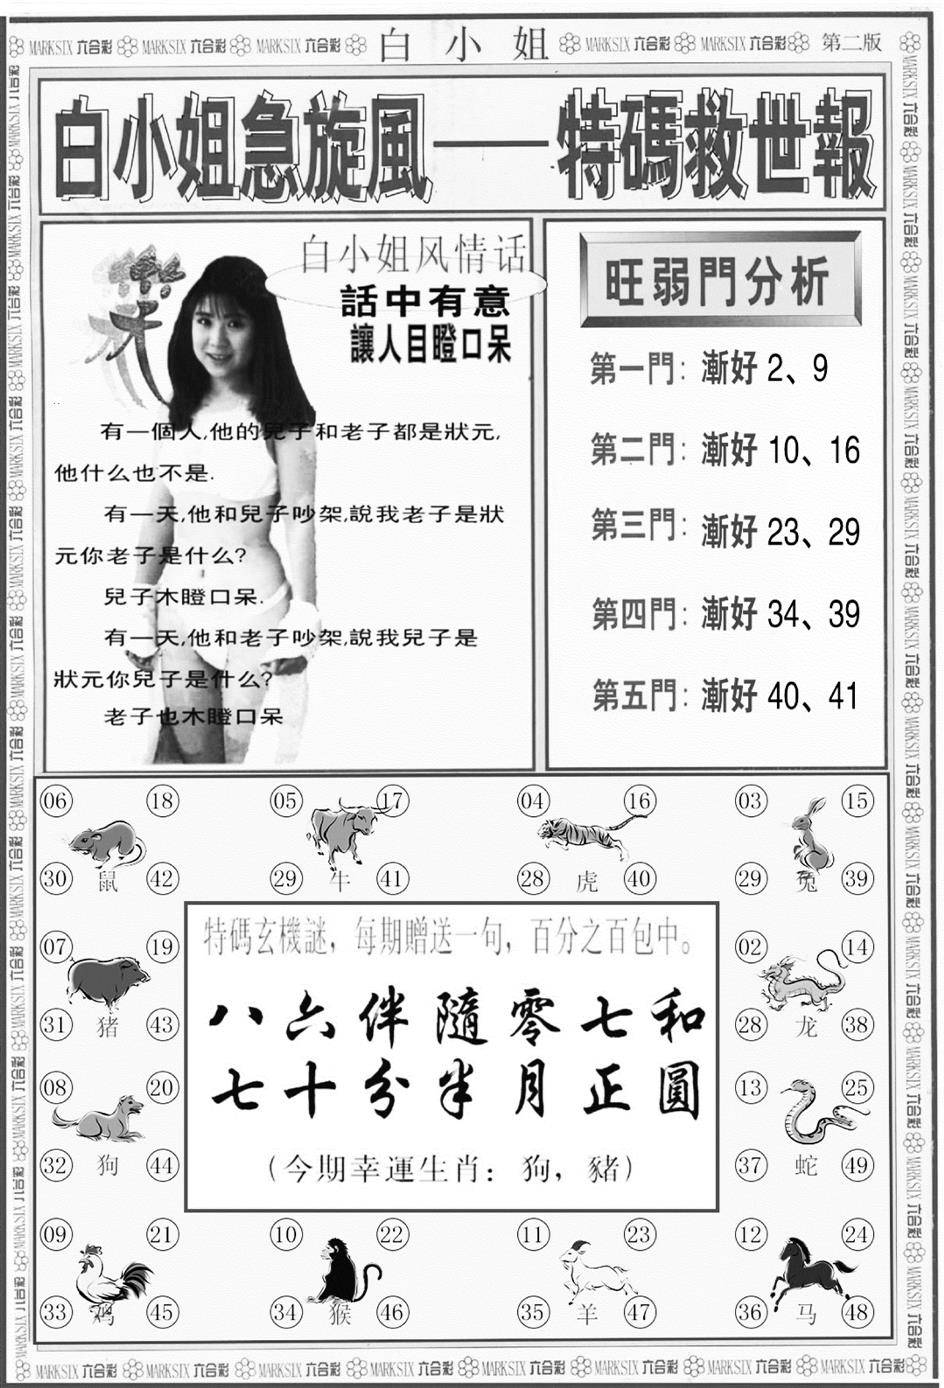 MARKSIX 六合彩 MARKSIX 六合彩 MARKSIX 六合彩 白小姐 MARKSIX 六合彩 MARKSIX 六合彩 第二版
白小姐急旋風——特碼救世報
白小姐风情话
話中有意
讓人目瞪口呆
有一個人,他的兒子和老子都是狀元,
他什么也不是.
有一天,他和兒子吵架,說我老子是狀
元你老子是什么?
兒子木瞪口呆.
有一天,他和老子吵架,說我兒子是
狀元你兒子是什么?
老子也木瞪口呆
旺弱門分析
第一門: 漸好 2、9
第二門: 漸好 10、16
第三門: 漸好 23、29
第四門: 漸好 34、39
第五門: 漸好 40、41
06 18 05 17 04 16 03 15
30 鼠 42 29 牛 41 28 虎 40 29 兔 39
特碼玄機謎，每期贈送一句，百分之百包中。
八六伴隨零七和
七十分半月正圓
(今期幸運生肖：狗，豬)
07 19
31 猪 43
08 20
32 狗 44
02 14
28 龙 38
13 25
37 蛇 49
09 21 10 22 11 23 12 24
33 鸡 45 34 猴 46 35 羊 47 36 马 48
MARKSIX 六合彩 MARKSIX 六合彩 MARKSIX 六合彩 MARKSIX 六合彩 MARKSIX 六合彩 MARKSIX 六合彩 MARKSIX 六合彩 MARKSIX 六合彩